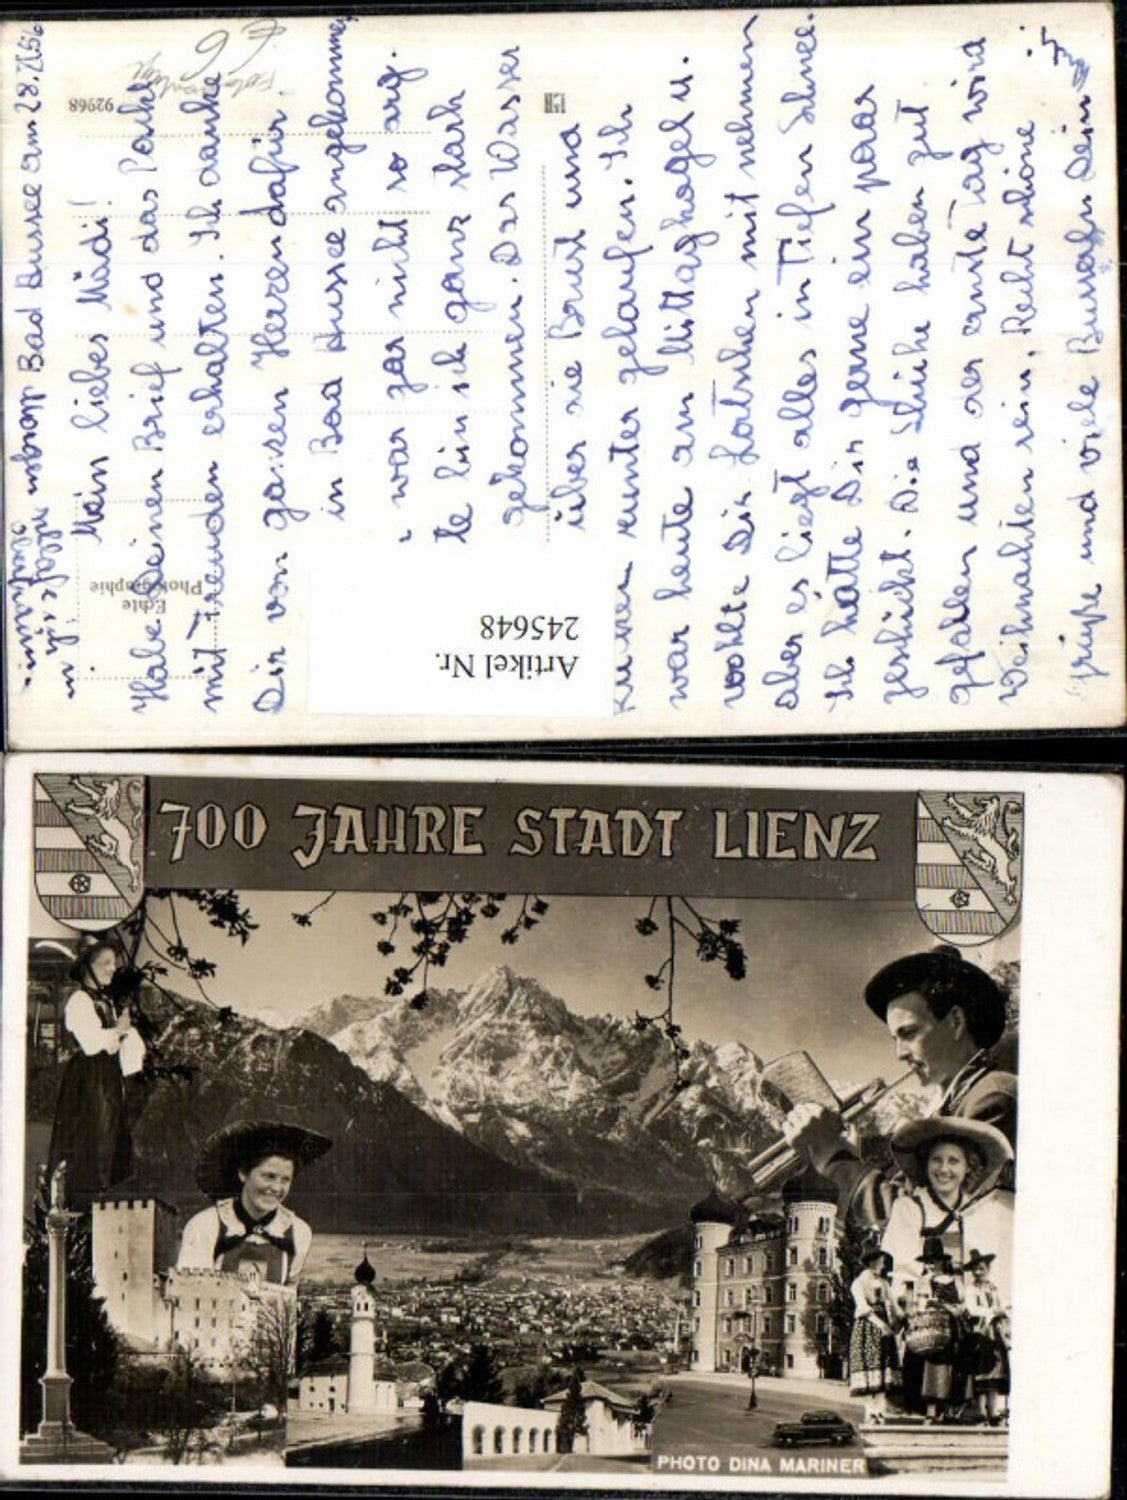 Bad Aussee am 28.
Mein liebes Mädi!
Habe Deinen Brief und das Packl
mit Freuden erhalten. Ich danke
Dir von ganzen Herzen dafür.
in Bad Aussee angekommen
war gar nicht so arg.
te bin ich ganz stark
gekommen. Das Wasser
über die Brust und
runter gelaufen. Ich
war heute am Mittagkogel u.
wollte Dir Latschen mit nehmen
aber es liegt alles in Tiefen Schnee.
Ich hätte Dir gerne ein paar
geschickt. Die Schuhe haben gut
gefallen und der ernste Tag wird
Weihnachten sein. Recht schöne
Grüße und viele Busserln Dein
92968
Echte
Photographie
Artikel Nr.
245648
700 JAHRE STADT LIENZ
PHOTO DINA MARINER